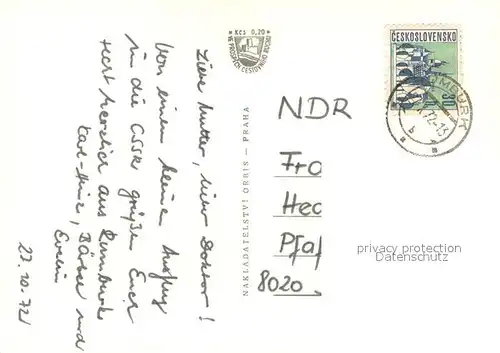 Liebe Mutter, lieber Doktor!
Von einem kleine Ausflug
in die CSSR grüßen Euch
recht herzlich aus Rumburk
Karl-Heinz, Bärbel und
Evelin
22.10.72
Kčs 0,20
VE PROSPĚCH CESTOVNÍHO RUCHU
NAKLADATELSTVÍ ORBIS – PRAHA
ČESKOSLOVENSKO
30
RUMBURK
NDR
Fro
Hec
Pfaf
8020
privacy protection
Datenschutz